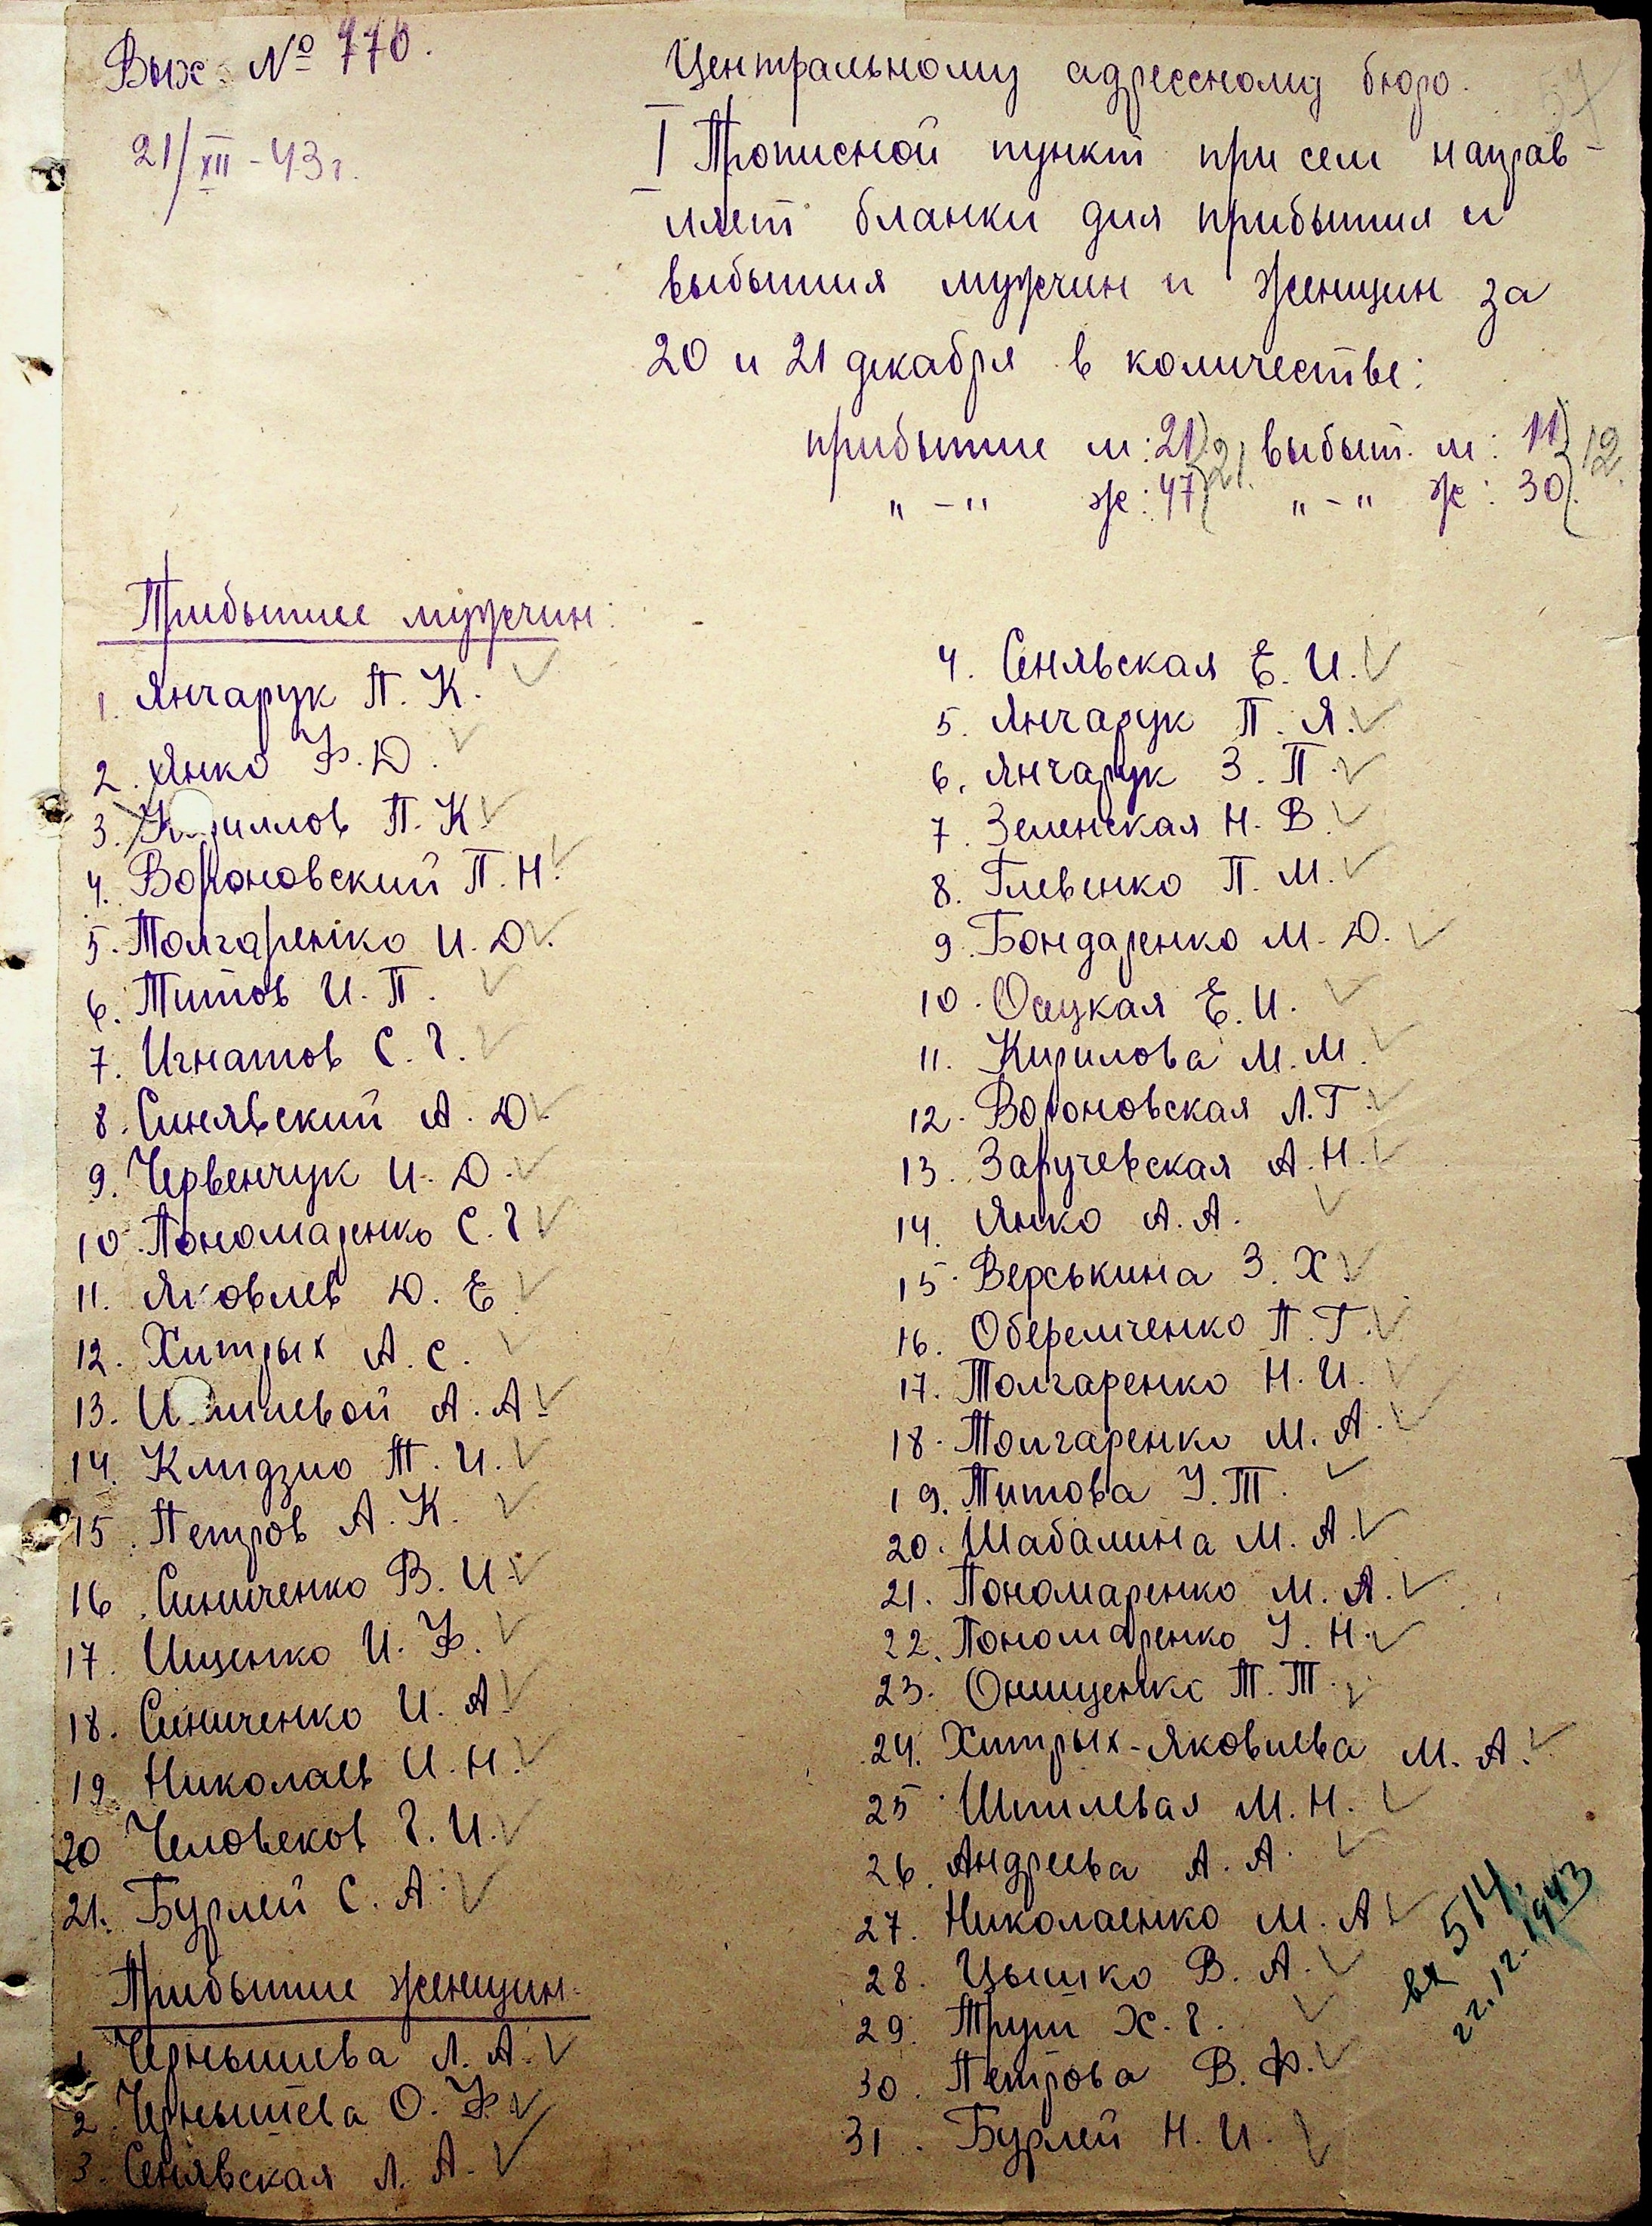 Вых. № 770.
21/XII-43 г.
57
Центральному адресному бюро.
I Прописной пункт при сем направ-
ляет бланки для прибытия и
выбытия мужчин и женщин за
20 и 21 декабря в количестве:
прибытие м: 21 } 21. выбыт. м: 11 } 12.
" - " ж: 47 " - " ж: 30.
Прибытие мужчин:
1. Янчарук П. К.
2. Янко Ф. Д.
3. К риллов П. К.
4. Вороновский П. Н.
5. Толгаренко И. Д.
6. Титов И. П.
7. Игнатов С. Г.
8. Синявский А. Д.
9. Червенчук И. Д.
10. Пономаренко С. Г.
11. Яковлев Д. Е.
12. Хитрых А. С.
13. илевой А. А.
14. Клидзио Т. И.
15. Петров А. К.
16. Синиченко В. И.
17. Ищенко И. Ф.
18. Синиченко И. А.
19. Николаев И. Н.
20 Человеков Г. И.
21. Бурлей С. А.
Прибытие женщин.
1 Чернышева Л. А.
2. Чернышева О. Ф.
3. Сенявская Л. А.
4. Сенявская Е. И.
5. Янчарук П. Я.
6. Янчарук З. П.
7. Зеленская Н. В.
8. Глевенко П. М.
9. Бондаренко М. Д.
10. Осецкая Е. И.
11. Кирилова М. М.
12. Вороновская Л. Г.
13. Заручевская А. Н.
14. Янко А. А.
15. Верськина З. Х.
16. Оберемченко П. Г.
17. Толгаренко Н. И.
18. Толгаренко М. А.
19. Титова У. Т.
20. Шабалина М. А.
21. Пономаренко М. А.
22. Пономаренко У. Н.
23. Онищенко Т. Т.
24. Хитрых-Яковлева М. А.
25. Шпилевая М. Н.
26. Андреева А. А.
27. Николаенко М. А.
28. Цышко В. А.
29. Труш Х. Г.
30. Петрова В. Ф.
31. Бурлей Н. И.
вх 514.
22.12.1943